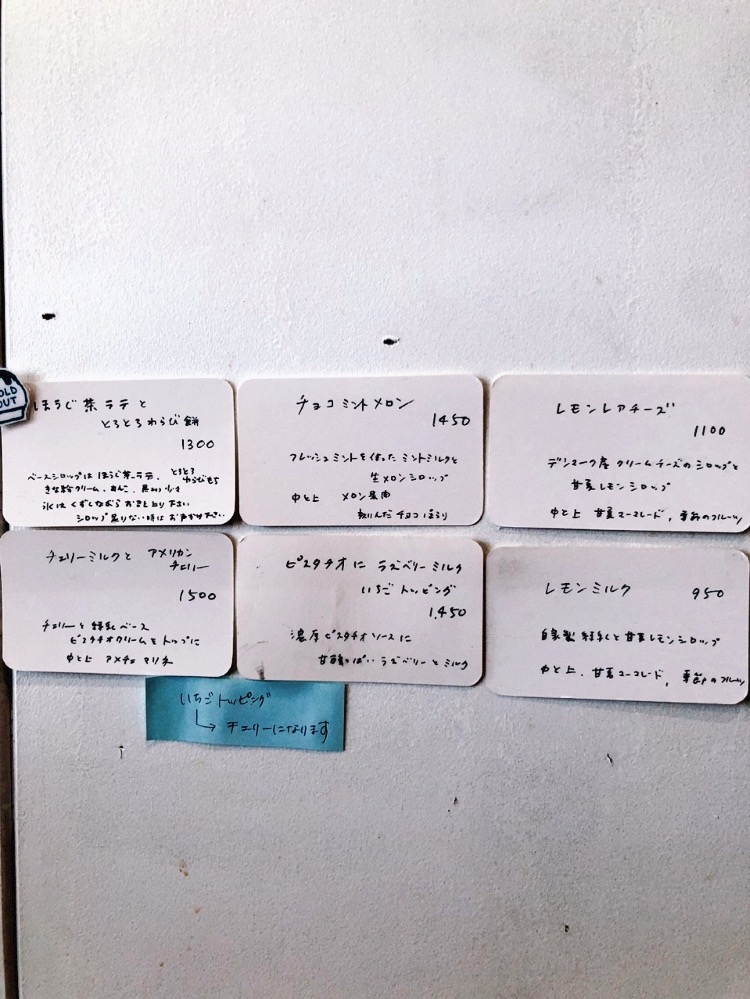 SOLD OUT
ほうじ茶ラテと
とろとろわらび餅
1300
ベースシロップは ほうじ茶ラテ、とろとろわらびもち
きな粉クリーム、あんこ、黒みつ
氷はくずしながらお召し上り下さい
シロップ足りない時はお声がけ下さい
チョコミントメロン
1450
フレッシュミントを使ったミントミルクと
生メロンシロップ
中と上 メロン果肉
刻んだチョコ
レモンレアチーズ
1100
デンマーク産クリームチーズのシロップと
甘夏レモンシロップ
中と上 甘夏マーマレード, 季節のフルーツ
チェリーミルクと アメリカン
チェリー
1500
チェリーと練乳ベース
ピスタチオクリームをトップに
中と上 アメチェマリネ
ピスタチオに ラズベリーミルク
いちごトッピング
1,450
濃厚ピスタチオソースに
甘酸っぱい ラズベリーとミルク
レモンミルク 950
自家製練乳と甘夏レモンシロップ
中と上、甘夏マーマレード, 季節のフルーツ
いちごトッピング
↳ チェリーになります